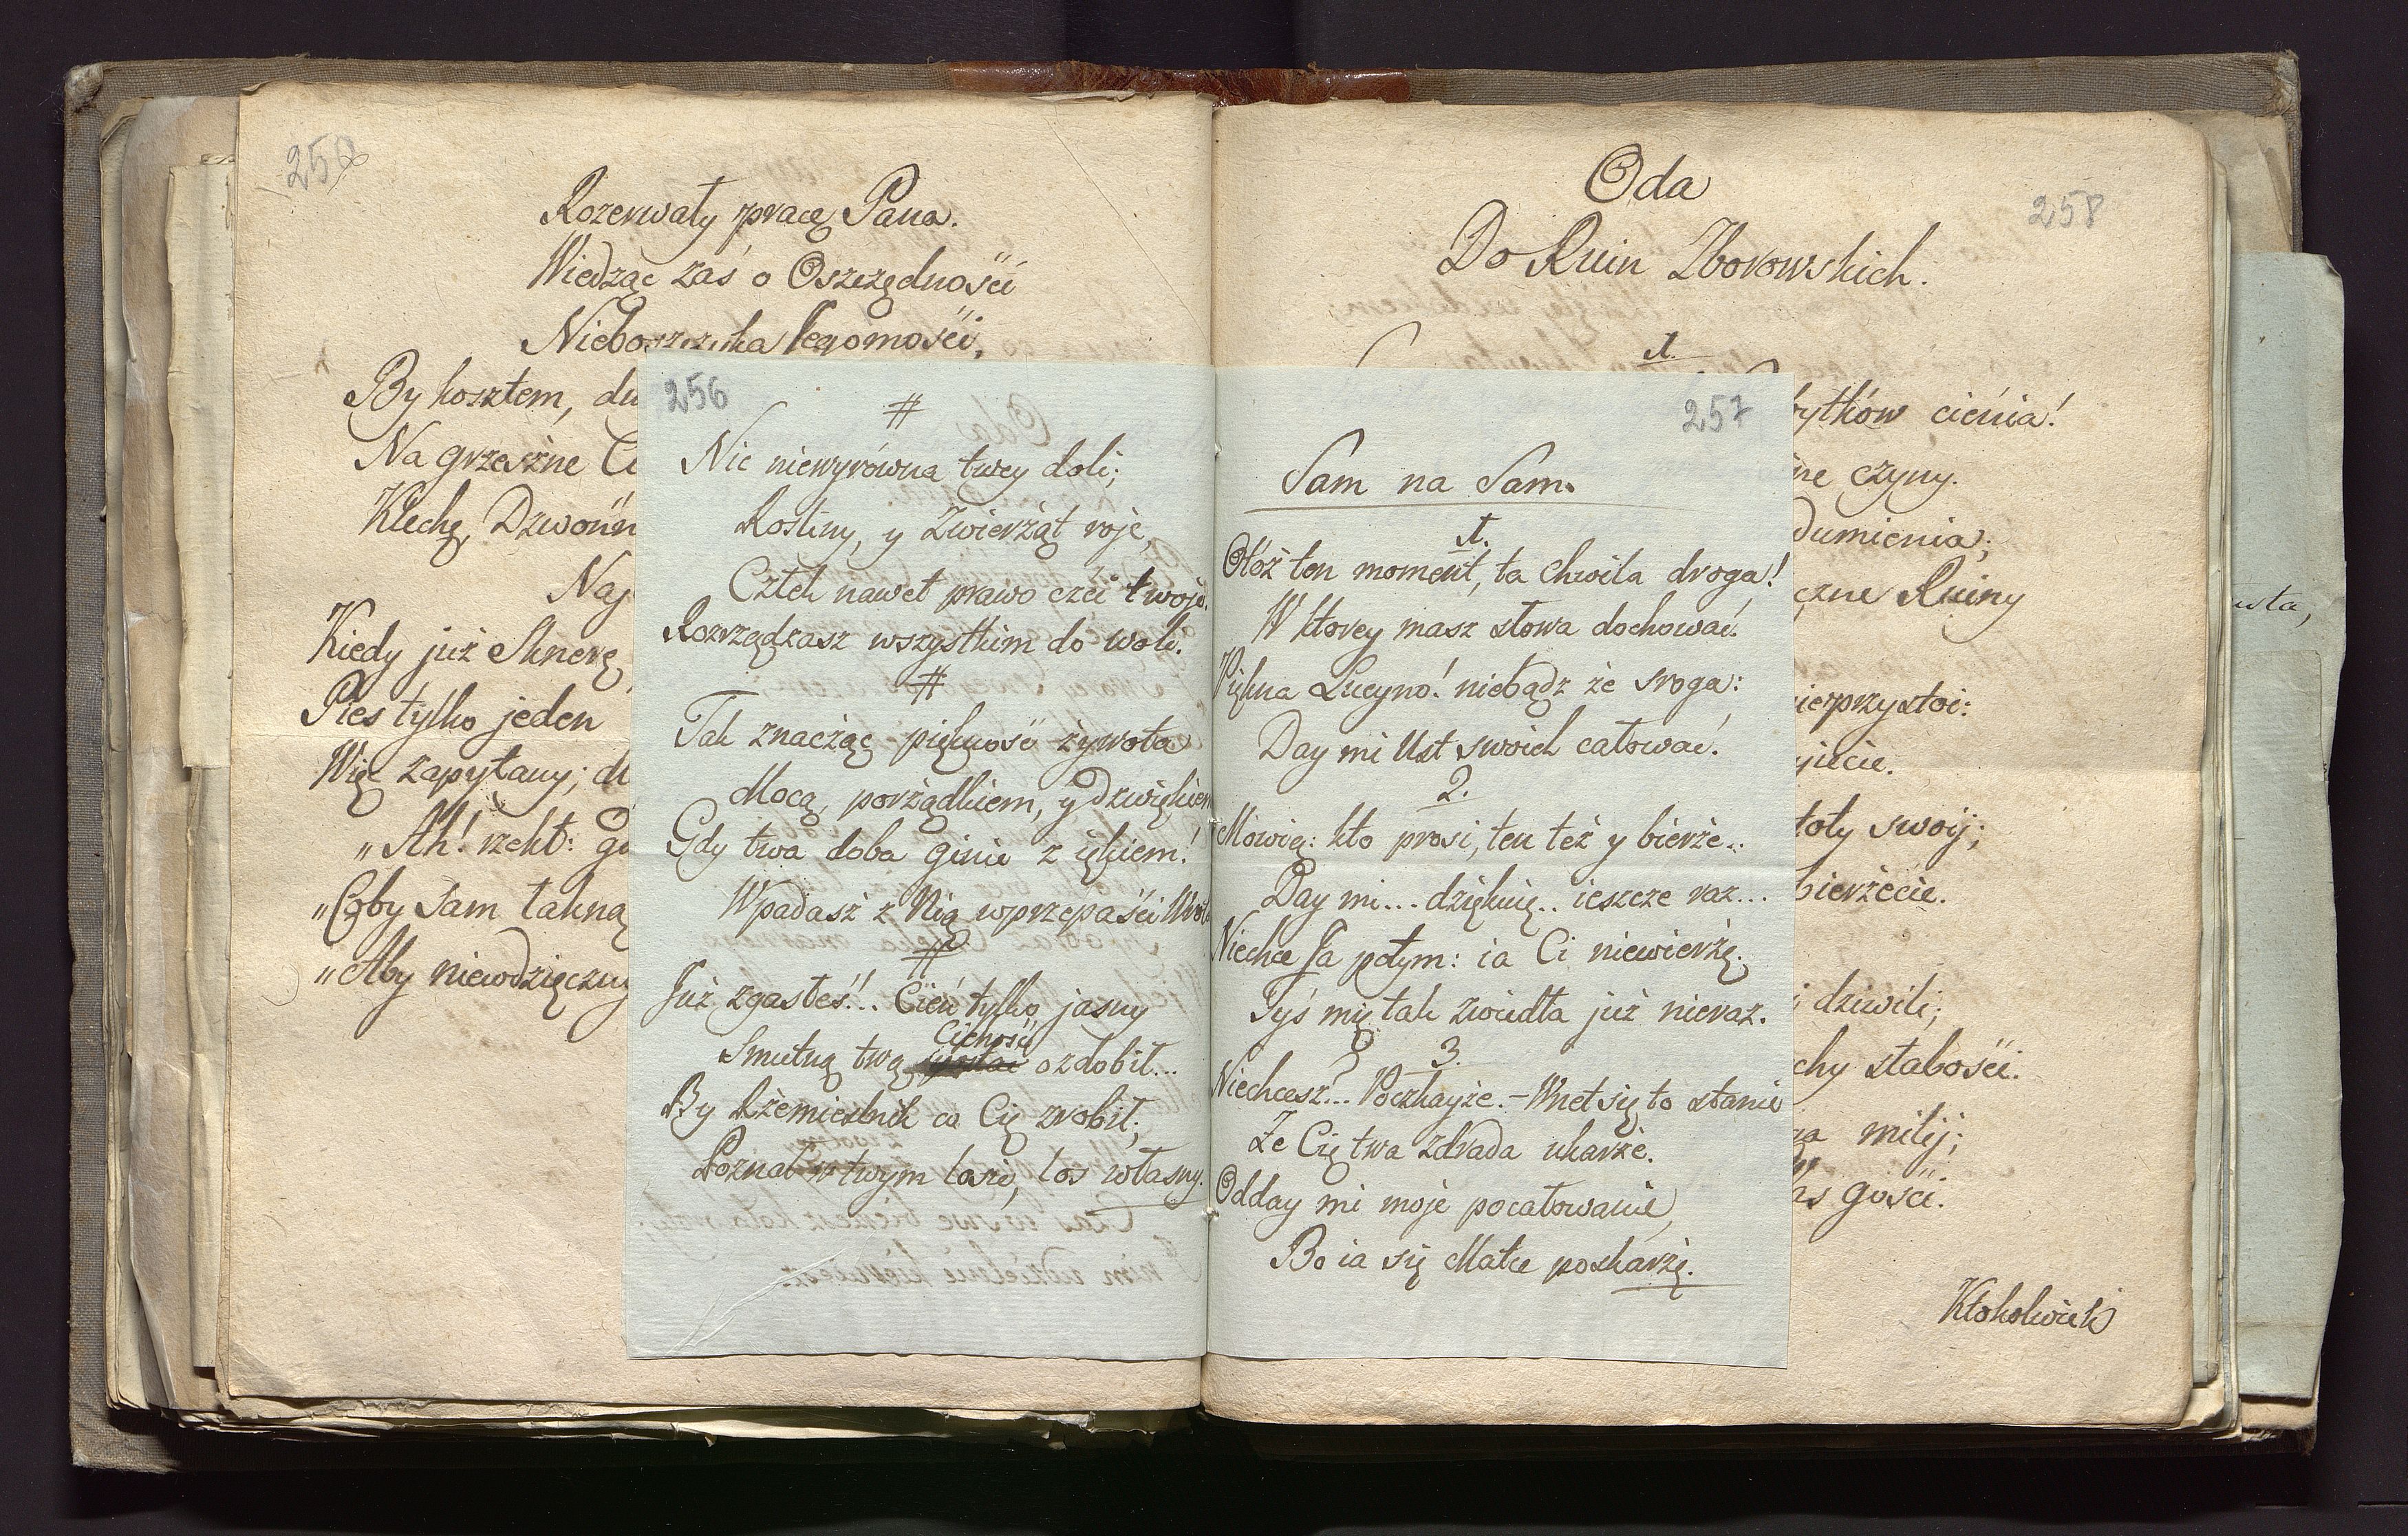 Rozerwały pracę Pana.
Wiedząc zaś o Oszczędności
Nieboszczyka Jegomości,
By kosztem,
Na grzeszne
Klechę,
Kiedy już Sknerę
Pies tylko jeden
Więc zapytany;
„Ah! rzekł:
„Coby sam
„Aby niewdzięczny
256
#
Nic niewyrówna twey doli;
Rośliny, y Zwierżąt roje,
Człek nawet prawo czci twoje.
Rozrządzasz wszystkim do woli.
#
Tak znacżąc piękność żywota
Mocą, porżądkiem, y dzwiękiem
Gdy twa doba ginie z iękiem!
Wpadasż z Nią wprzepaści
#
Już zgasłeś!.. Cień tylko jasny
Cichość
Smutną twą ozdobił...
By Rżemieślnik co Cię zrobił;
Poznał w twym losie, los własny.
257
Sam na Sam.
1.
Otóż ten moment, ta chwila droga!
W ktorey masz słowa dochować.
Piękna Lucyno! niebądz że sroga:
Day mi Ust swoich całować.
2.
Mowię: kto prosi, ten też y bierże..
Day mi... dziękuię.. ieszcze raz...
Niechce Ja potym: ia Ci niewierżę.
Tyś mię tak zwiodła już nieraz.
3.
Niechcesz?... Poczkayże. - Wnet się to stanie
Że Cię twa zdrada ukarże.
Odday mi moje pocałowanie,
Bo ia się Matce poskarżę.
Oda
258
Do Ruin Zborowskich.
1.
cienia!
czyny.
dumienia;
Ruiny
nieprzystoi:
swoij;
bierżecie.
dziwili;
słabości.
milij;
gości.
Ktokolwiek